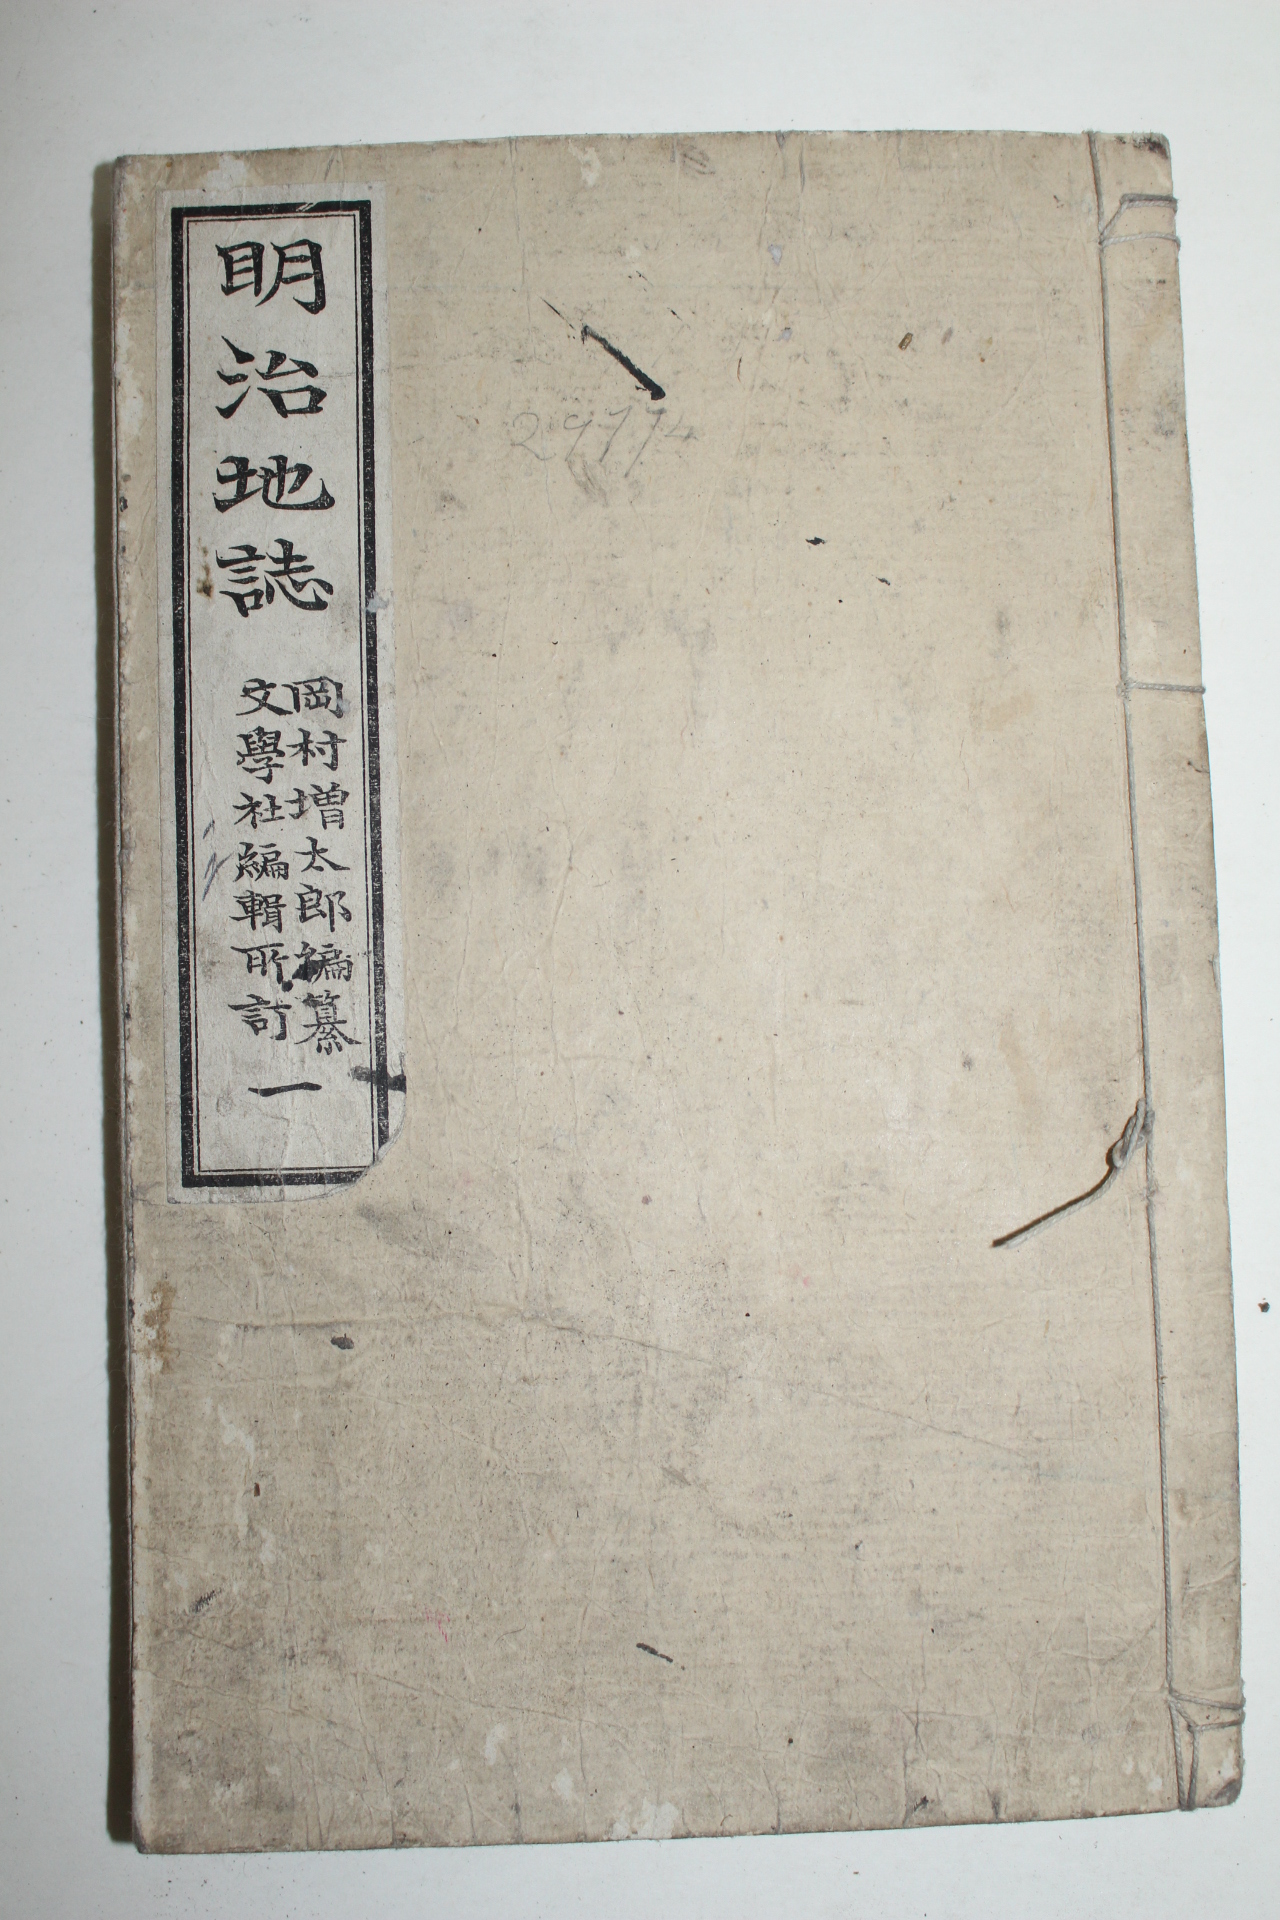 明治地誌
岡村増太郎編纂
文學社編輯所訂
一
29774